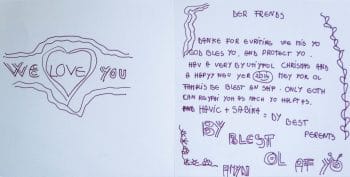 WE LOVE YOU
DER FRENDS
DANKE FOR EVRITING WE MIS YO
GOD BLES YO. AND PROTECT YO.
HAV A VERY BYUTYPOL CHRISMAS AND
A HAPPY NEW YER 2016 MEY YOR OL
BE BLEST AN SHIP. ONLY GOTH
CAN YOU AS MACH YO HALP AS.
AND HAVIC + SABINA = DY BEST
PERENTS
BY BLEST
OL AF YO